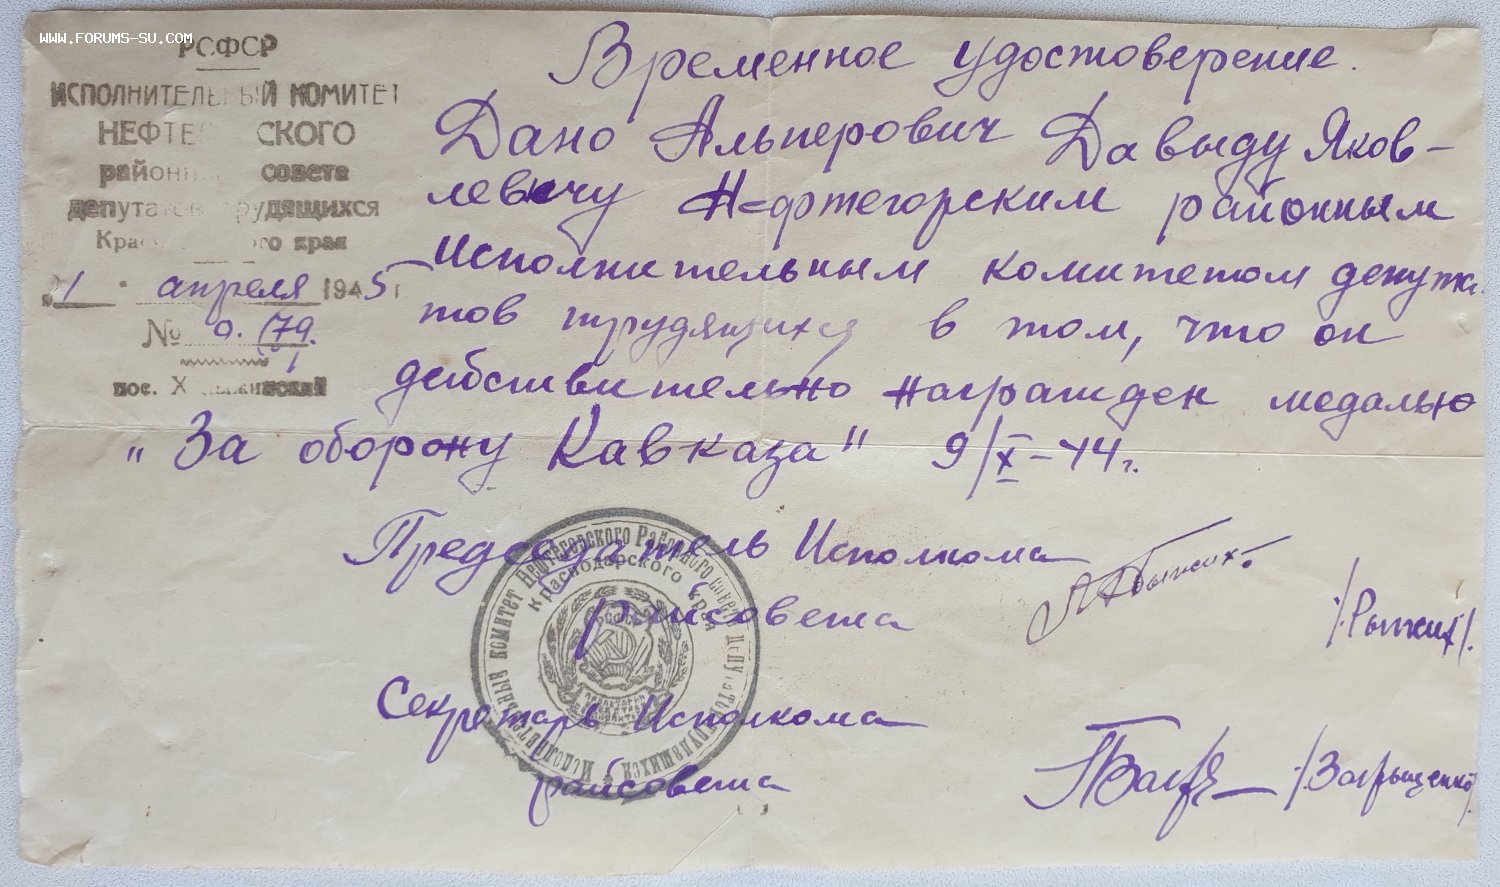 WWW.FORUMS-SU.COM
РСФСР
ИСПОЛНИТЕЛЬНЫЙ КОМИТЕТ
НЕФТЕ СКОГО
районн совета
депутатов трудящихся
Крас ого края
"1" апреля 1945 г.
№ 0.179.
пос. Х ыжинский
Временное удостоверение.
Дано Альперович Давыду Яков-
левичу Нефтегорским районным
исполнительным комитетом депута-
тов трудящихся в том, что он
действительно награжден медалью
"За оборону Кавказа" 9/X-44 г.
Председатель Исполкома
райсовета
Секретарь Исполкома
райсовета
Исполнительный комитет Нефтегорского Районного совета депутатов трудящихся
Краснодарского края